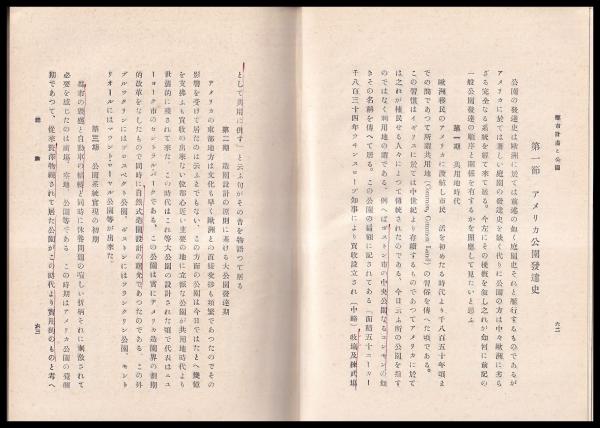 都市計畫と公園
六二
第一節 アメリカ公園發達史
公園の發達史は歐洲に於ては前述の如く庭園史それと雁行するものであるが
アメリカに於ては著しい庭園の發達史を缺く代りに公園の方は中々歐洲に劣ら
ざる完全なる系統を經て來て居る。今左にその梗概を敍し之れが如何に前記の
一般公園發達の順序と關係を有するかを照應して見たいと思ふ
第一期 共用地時代
歐洲移民のアメリカに渡航し市民 活を初めたる時代より千八百五十年頃ま
での間であつて所謂共用地(Common, Common Land)の習俗を傳へた頃である。
この習慣はイギリスに於ては中世紀より存續するものであつてアメリカに於て
は之れが植民せる人々によつて傳統されたのである、今日云ふ所の公園を指す
のではなく利用地の謂である。例へばボストン市の中央公園なるコンモンの如
きその名稱を傳へて居る。この公園の扁額に記されてある「面積五十エーカー
千八百三十四年ウキンスロープ知事により買收設立され(中略)牧場及練武場
として共用に供す」と云ふ句がその昔を物語つて居る
第二期 造園設計の原則に基ける大公園發達期
アメリカの東部地方は文化も早く歐洲との直接交渉も頻繁であつたのでその
影響を受けて居たのは云ふまでもない、この方面の公園は今日ではたとへ幾億
を支拂ふも買收の出來ない位都心近い主要の地に立派な公園が共用地時代より
世襲的に殘されて來た。この時代はこれ等大公園の設計された頃で代表はニユ
ーヨーク市のセントラルパークである。この公園は實にアメリカ造園界の劃期
的改革をなしたもので同時に自然式造園設計の曙光であつたのである。この外
ブルツクリンにはプロスペクト公園、ボストンにはフランクリン公園、モント
リオールにはマウントローヤル公園等が出來た。
第三期 公園系統實現の初期
都市の膨脹と自動車の頻輳と同時に休養問題の喧しい折柄それに刺戟されて
必要を感じたのは廣場、空地、公園等である この時期はアメリカ公園の發酵
動であつて、從來贅澤物視されて居た公園がこの時代より實用的のものと考へ
總論
六三